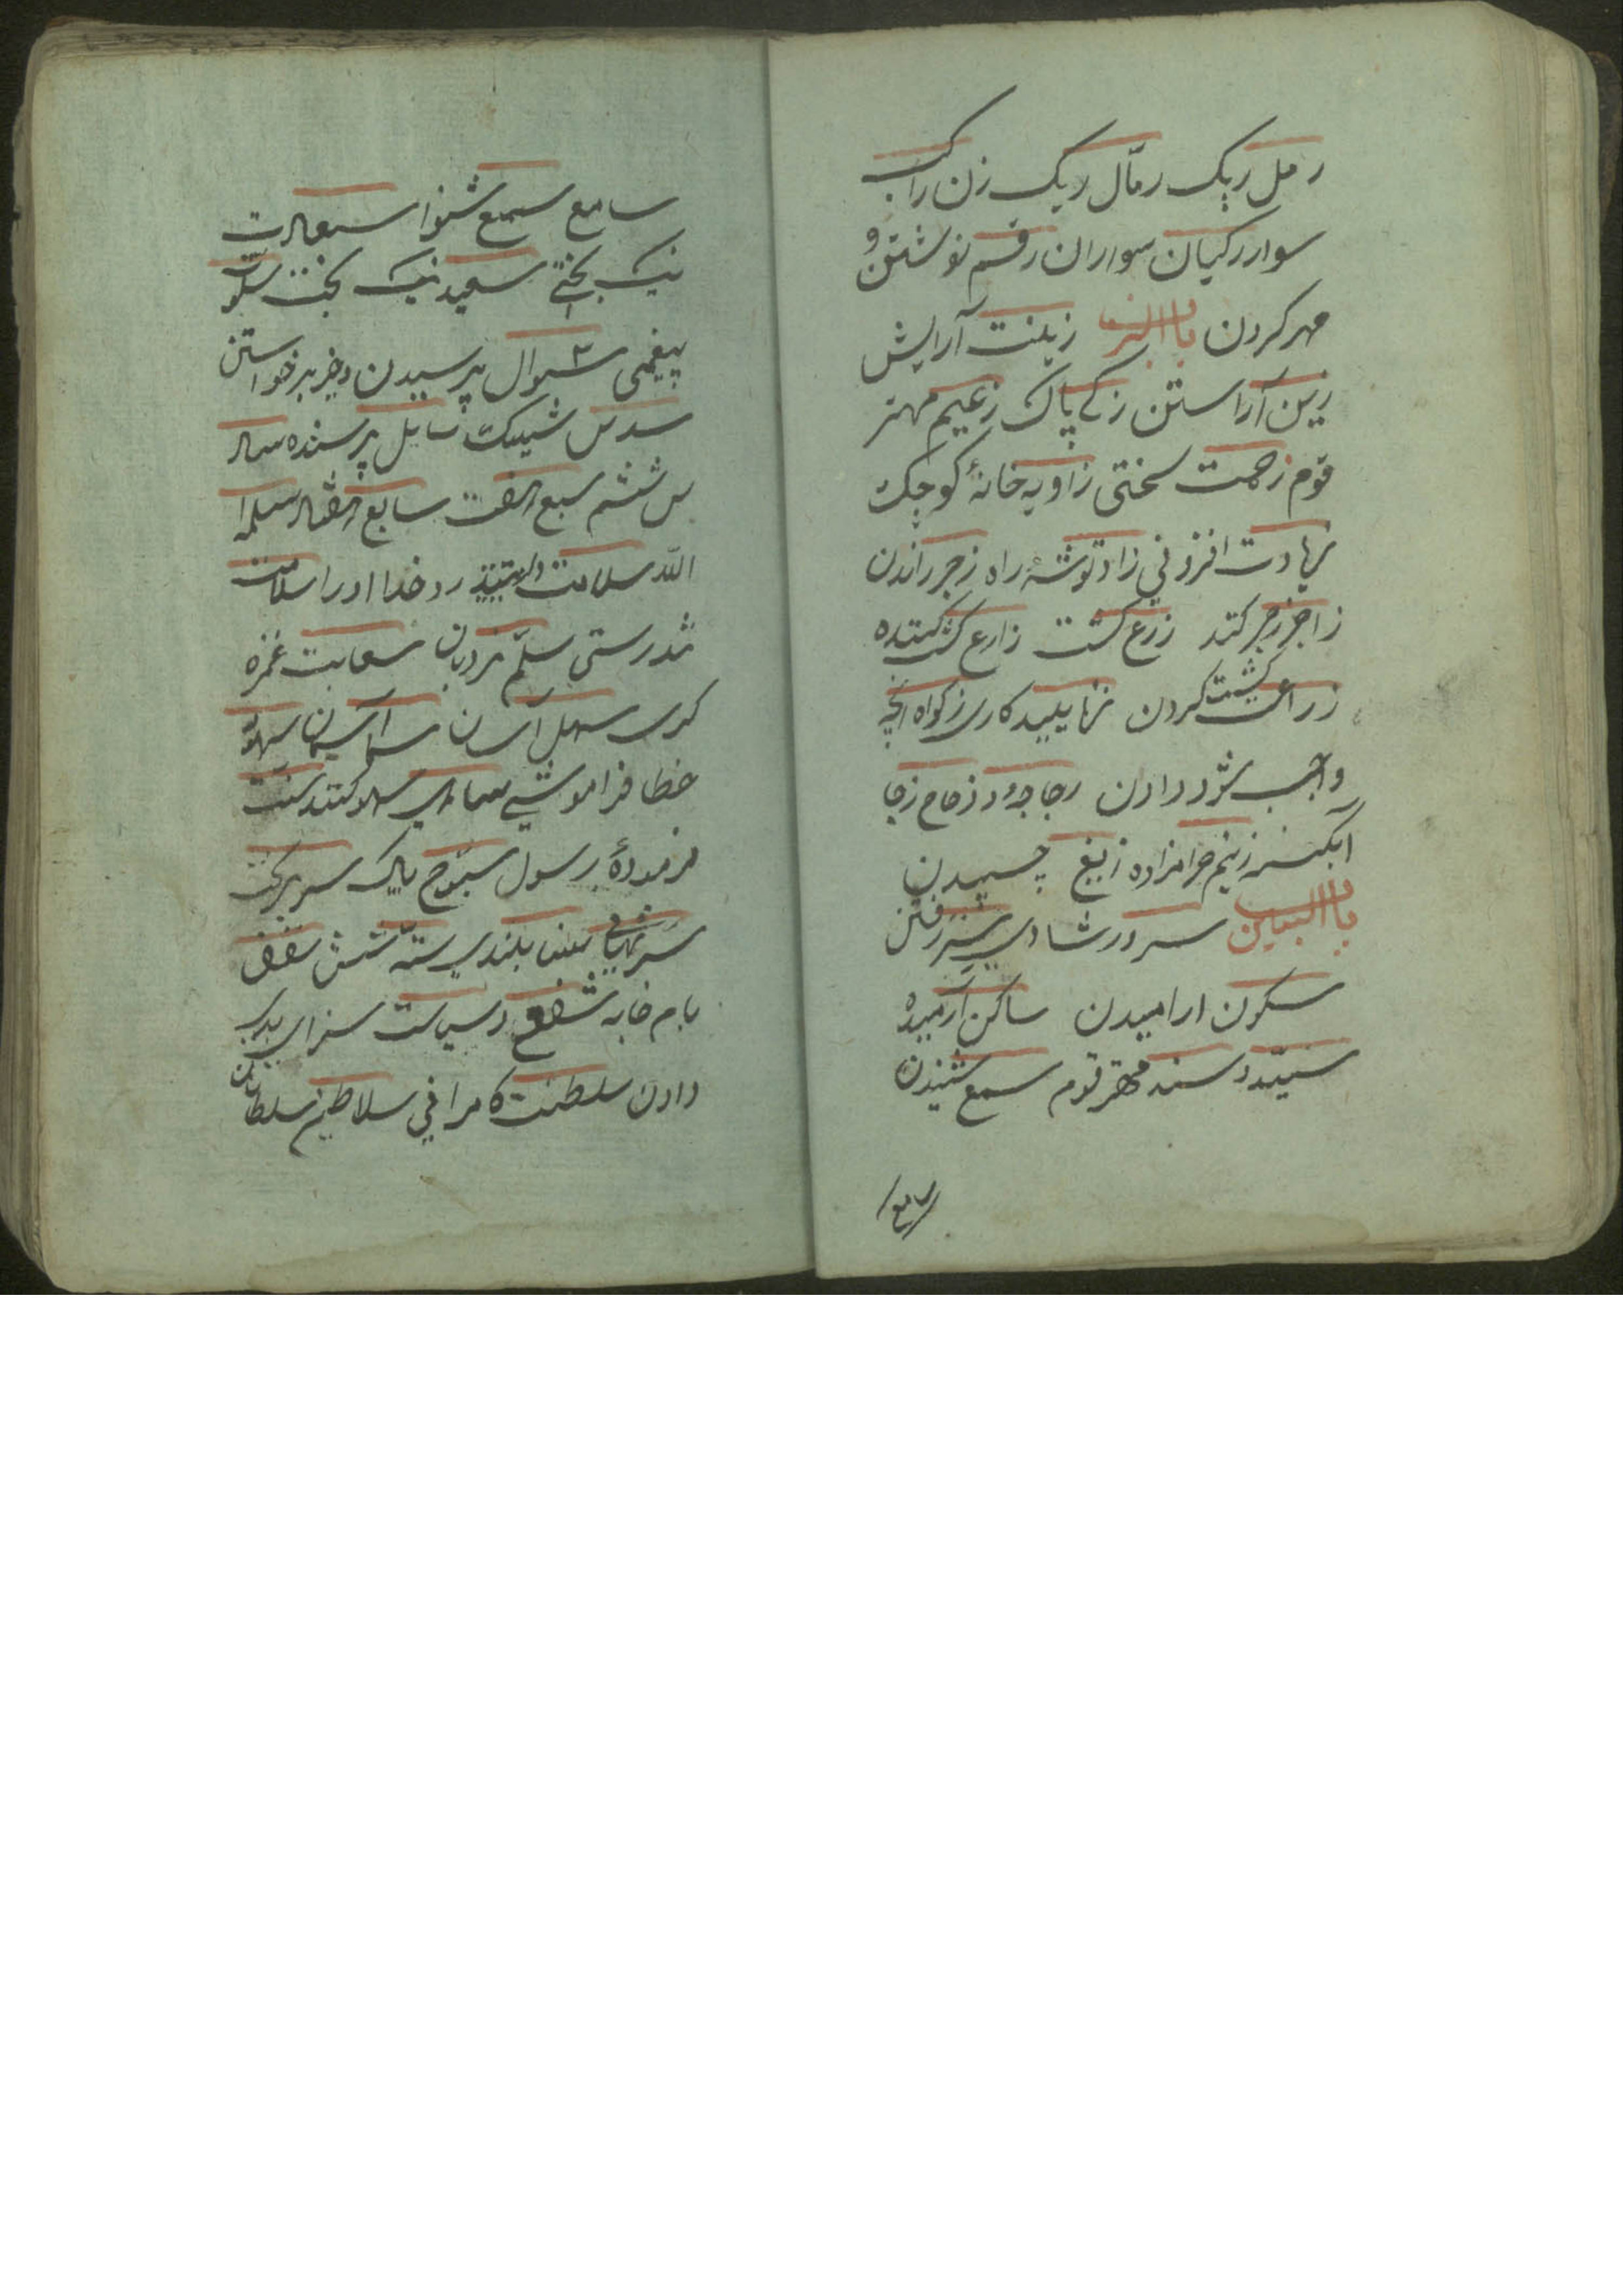 رمل ریک رمال ریک زن راکب
سوار رکبان سواران رقم نوشتن و
مهر کردن باب الزا زینت آرایش
زین آراستن زکے پاک زعیم مهتر
قوم زحمت سختی زاویه خانهٔ کوچک
زیادت افزونی زاد توشهٔ راه زجر راندن
زاجر زجر کنند زرع کشت زارع کشت کننده
زراعت کشت کردن زنا پلید کاری زکواه آنچه
واجب شود دادن زجاجه و زجاج زجا
آبگینه زنیم حرامزاده زیغ چسپیدن
باب السین سرور شادی سیر رفتن
سکون ارامیدن ساکن آرمیده
سید و سند مهتر قوم سمع شنیدن
سامع
سامع سمیع شنوا سعادت
نیک بختے سعید نیک بخت سلوت
بیغمی سوال پرسیدن و خبر خواستن
سدس شیک سایل پرسنده ساد
س ششم سبع هفت سابع هفتم سلمه
الله سلامت دارد خدا او را سلامت
تندرستی سلم نردبان سعایت غمزه
کری سهل آسان سما آسمان سهو
خطا فراموشی ساهی سهو کننده سنت
فرمودهٔ رسول سبوح پاک سریر تخت
سر نهانی سنا بلندی سته شش سقف
بام خانه سیاست سزای بد
دادن سلطنت کامرانی سلاطین سلطانان